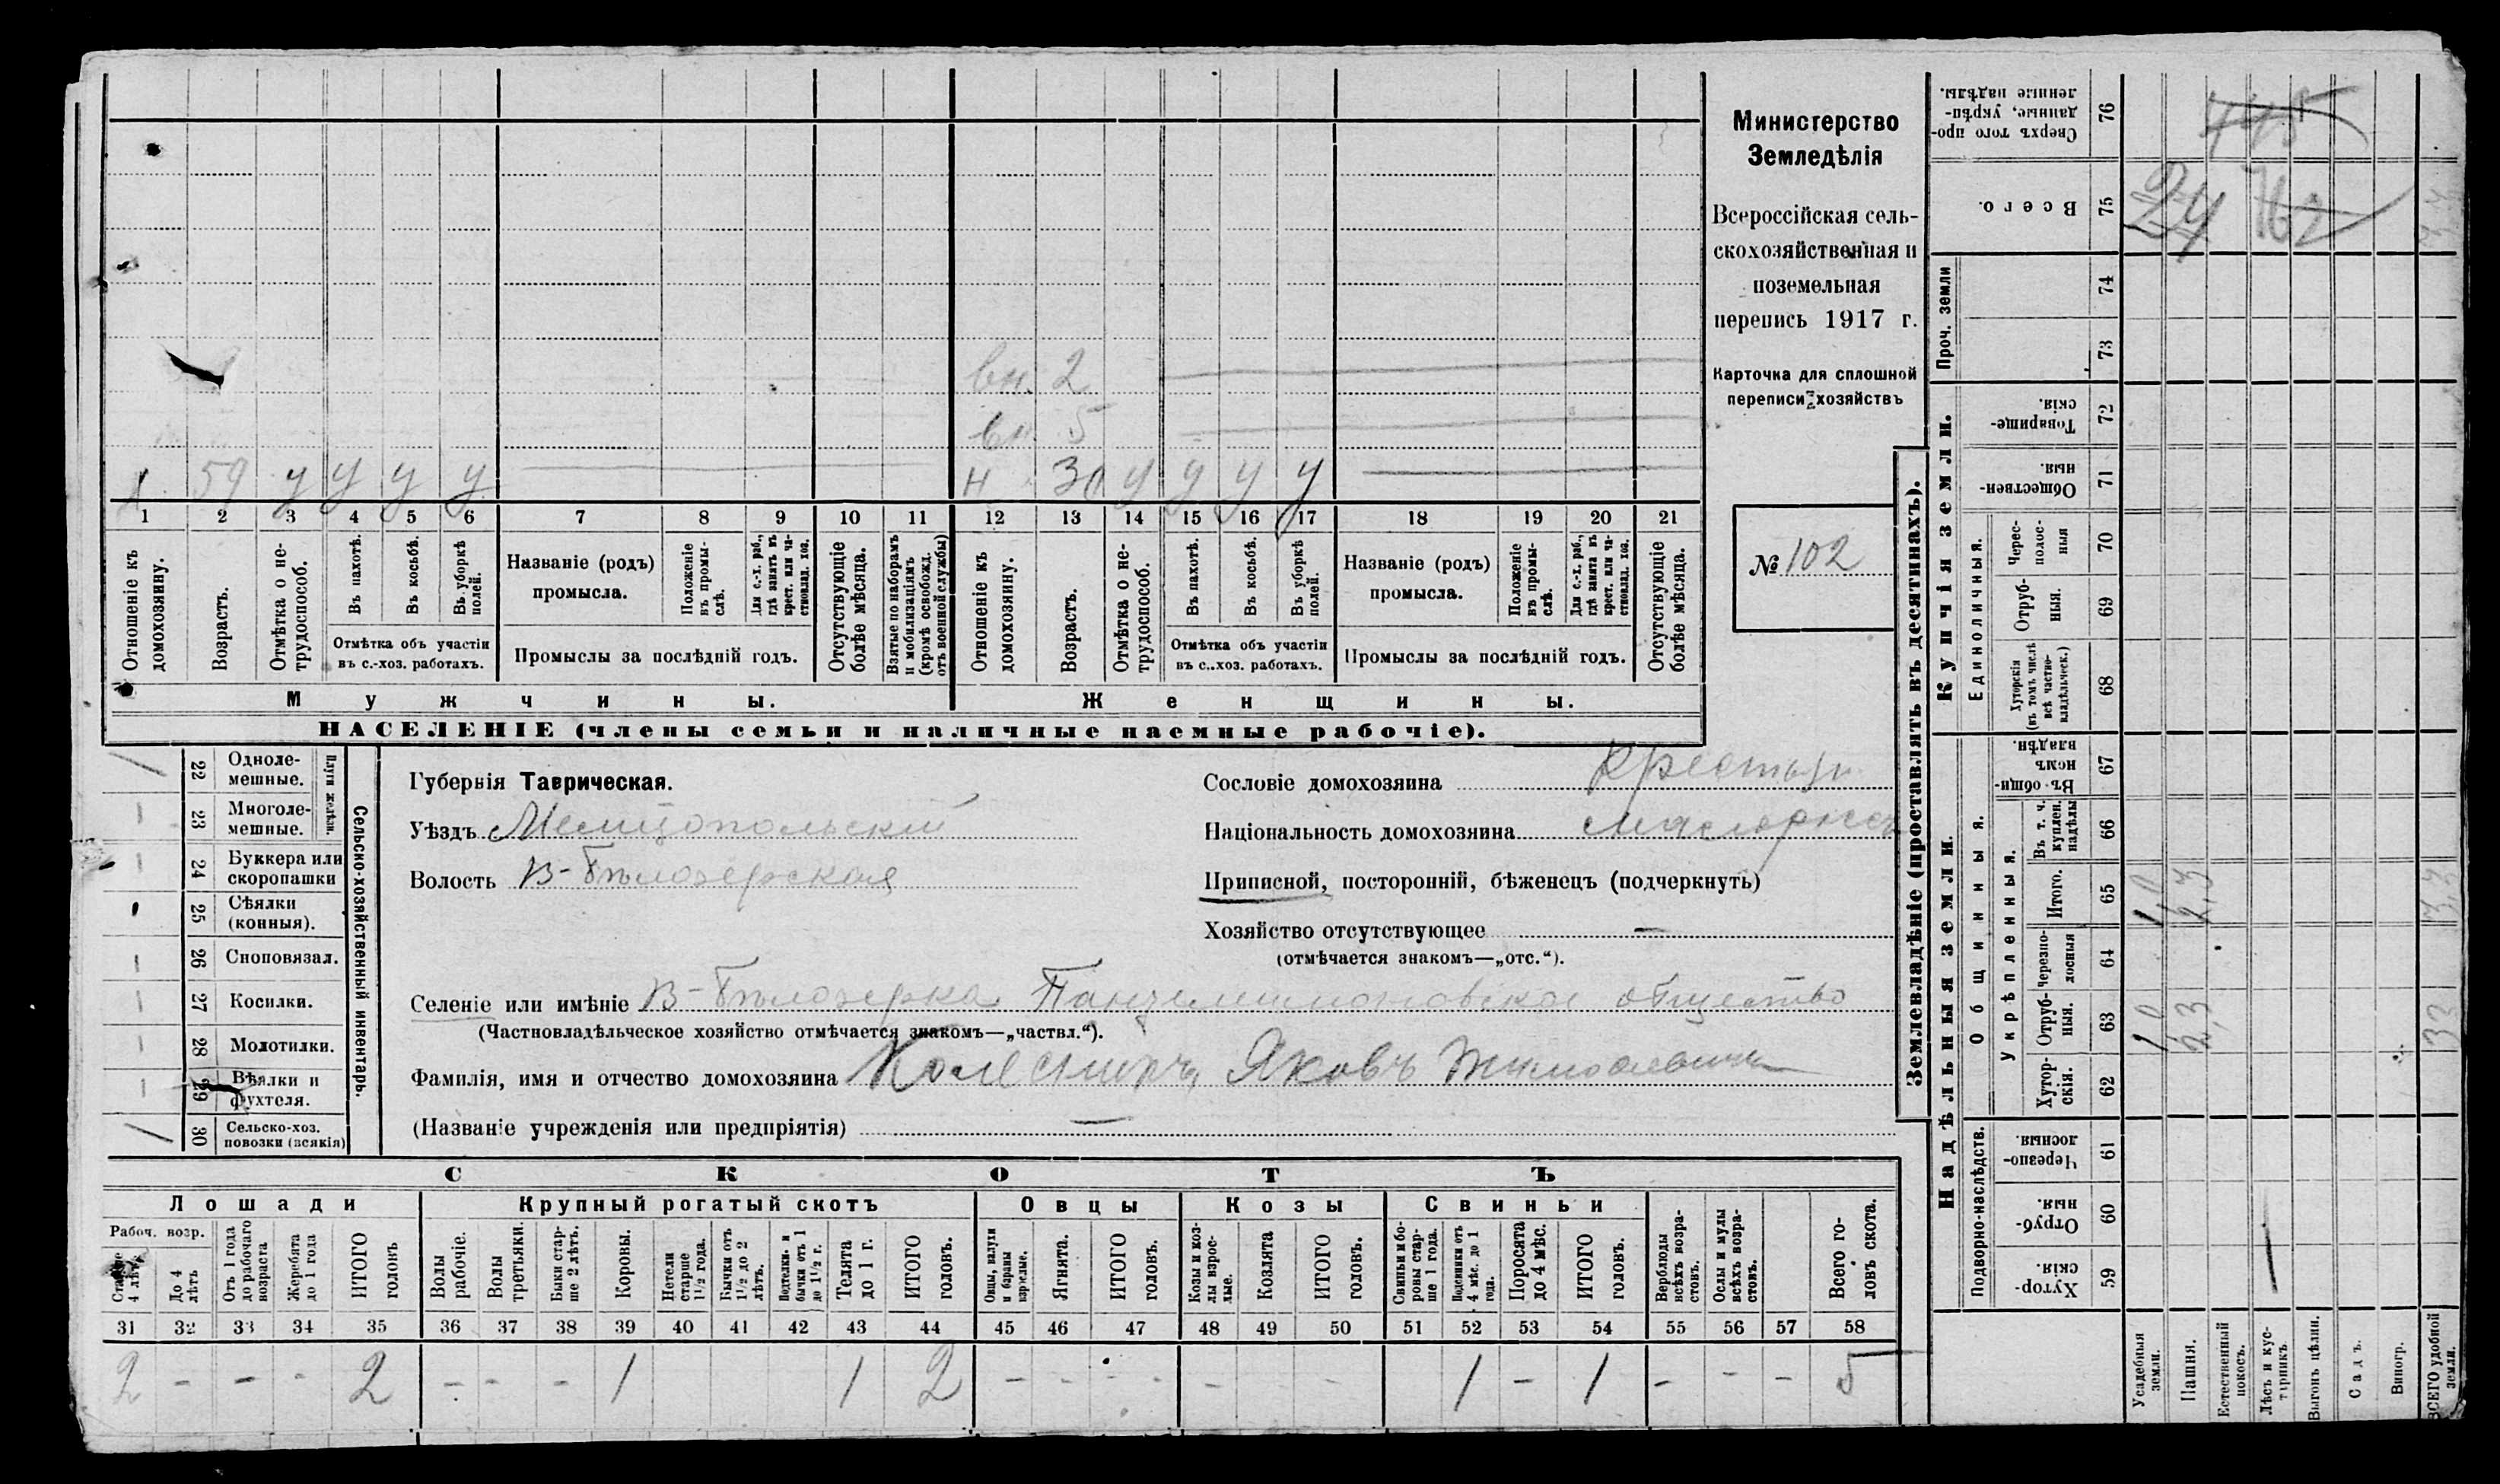 Министерство
Земледѣлія
Всероссійская сель-
скохозяйственная и
поземельная
перепись 1917 г.
Карточка для сплошной
переписи хозяйствъ
№ 102
вн. 2
вн 5
59 у у у у
н 30 у у у у
1 2 3 4 5 6 7 8 9 10 11 12 13 14 15 16 17 18 19 20 21
Отношеніе къ домохозяину.
Возрастъ.
Отмѣтка о не-трудоспособ.
Въ пахотѣ.
Въ косьбѣ.
Въ уборкѣ полей.
Отмѣтка объ участіи въ с.-хоз. работахъ.
Названіе (родъ) промысла.
Положеніе въ промы-слѣ.
Для с.-х. раб., гдѣ занятъ въ крест. или ча-стновлад. хоз.
Промыслы за послѣдній годъ.
Отсутствующіе болѣе мѣсяца.
Взятые по наборамъ и мобилизаціямъ (кромѣ освобожд. отъ военной службы)
Отношеніе къ домохозяину.
Возрастъ.
Отмѣтка о не-трудоспособ.
Въ пахотѣ.
Въ косьбѣ.
Въ уборкѣ полей.
Отмѣтка объ участіи въ с..хоз. работахъ.
Названіе (родъ) промысла.
Положеніе въ промы-слѣ.
Для с.-х. раб., гдѣ занята въ крест. или ча-стновлад. хоз.
Промыслы за послѣдній годъ.
Отсутствующіе болѣе мѣсяца.
Мужчины.
Женщины.
НАСЕЛЕНІЕ (члены семьи и наличные наемные рабочіе).
Сельско-хозяйственный инвентарь.
Плуги желѣзн.
22 Одноле-мешные.
23 Многоле-мешные.
24 Буккера или скоропашки
25 Сѣялки (конныя).
26 Сноповязал.
27 Косилки.
28 Молотилки.
29 Вѣялки и фухтеля.
30 Сельско-хоз. повозки (всякія)
Губернія Таврическая.
Уѣздъ Мелитопольскій
Волость В-Бѣлозерская
Сословіе домохозяина крестьян
Національность домохозяина малоросс
Приписной, посторонній, бѣженецъ (подчеркнуть)
Хозяйство отсутствующее —
(отмѣчается знакомъ—„отс.“).
Селеніе или имѣніе В-Бѣлозерка общество
(Частновладѣльческое хозяйство отмѣчается знакомъ—„частвл.“).
Фамилія, имя и отчество домохозяина Яковъ
(Названіе учрежденія или предпріятія) —
СКОТЪ
Лошади
Крупный рогатый скотъ
Овцы
Козы
Свиньи
Рабоч. возр.
Старше 4 лѣтъ
До 4 лѣтъ
Отъ 1 года до рабочаго возраста
Жеребята до 1 года
ИТОГО головъ
Волы рабочіе.
Волы третьяки.
Быки стар-ше 2 лѣтъ.
Коровы.
Нетели старше 1½ года.
Бычки отъ 1½ до 2 лѣтъ.
Подтелки и бычки отъ 1 до 1½ г.
Телята до 1 г.
ИТОГО головъ.
Овцы, валухи и бараны взрослые.
Ягнята.
ИТОГО головъ.
Козы и коз-лы взрос-лые.
Козлята
ИТОГО головъ.
Свиньи и бо-ровы стар-ше 1 года.
Подсвинки отъ 4 мѣс. до 1 года.
Поросята до 4 мѣс.
ИТОГО головъ.
Верблюды всѣхъ возра-стовъ.
Ослы и мулы всѣхъ возра-стовъ.
Всего го-ловъ скота.
31 32 33 34 35 36 37 38 39 40 41 42 43 44 45 46 47 48 49 50 51 52 53 54 55 56 57 58
2 - - - 2 - - - 1 1 2 - - - - - - 1 - 1 - - - 5
Землевладѣніе (проставлять въ десятинахъ).
Надѣльныя земли.
Купчія земли.
Проч. земли
Подворно-наслѣдств.
Общинныя.
Укрѣпленныя.
Единоличныя.
59 Хутор-скія.
60 Отруб-ныя.
61 Черезпо-лосныя.
62 Хутор-скія.
63 Отруб-ныя.
64 Черезпо-лосныя
65 Итого.
66 Въ т. ч. куплен. надѣлы
67 Въ общин-номъ владѣн.
68 Хуторскія (въ томъ числѣ всѣ частно-владѣльческ.)
69 Отруб-ныя.
70 Черес-полос-ныя
71 Обществен-ныя.
72 Товарище-скія.
73
74
75 Всего.
76 Сверхъ того про-данные, укрѣп-ленные надѣлы.
Усадебныя земли.
Пашня.
Естественный покосъ.
Лѣсъ и кус-тарникъ.
Выгонъ цѣлин.
Садъ.
Виногр.
ВСЕГО удобной земли.
1,0 2,3 3,3
1,0 2,3 3,3